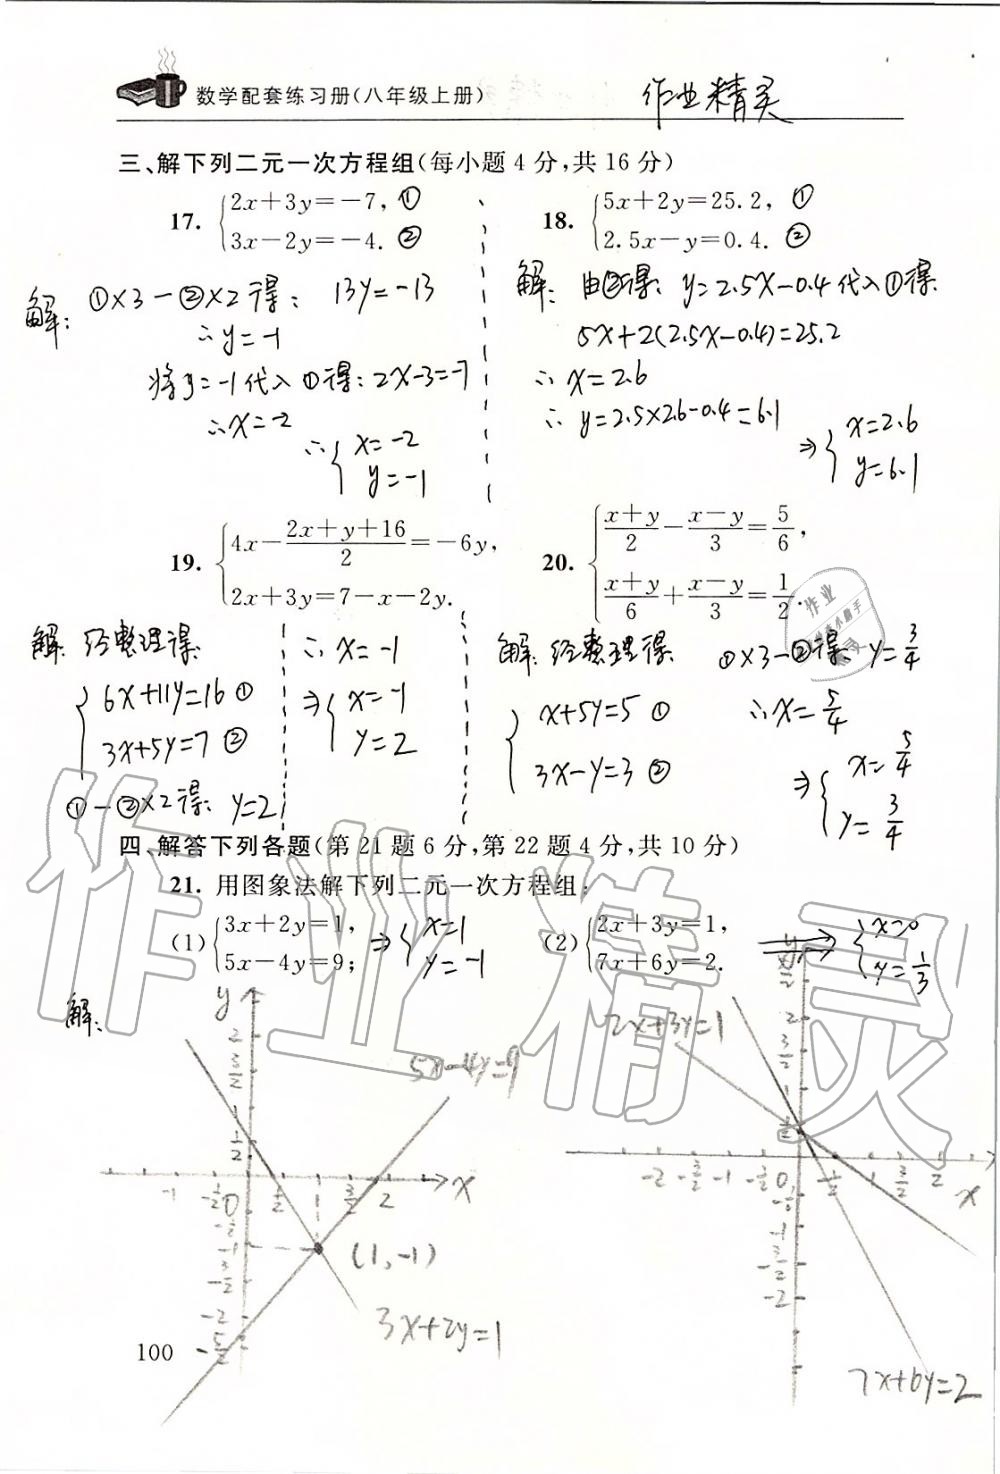 数学配套练习册(八年级上册)
作业精灵
三、解下列二元一次方程组(每小题4分,共16分)
17. {2x+3y=-7, ①
3x-2y=-4. ②
解: ①×3-②×2得: 13y=-13
∴y=-1
将y=-1代入①得:2x-3=-7
∴x=-2
∴{x=-2
y=-1
18. {5x+2y=25.2, ①
2.5x-y=0.4. ②
解: 由②得: y=2.5x-0.4代入①得:
5x+2(2.5x-0.4)=25.2
∴x=2.6
∴y=2.5×2.6-0.4=6.1
⇒{x=2.6
y=6.1
19. {4x-(2x+y+16)/2=-6y,
2x+3y=7-x-2y.
解: 经整理得:
{6x+11y=16 ①
3x+5y=7 ②
①-②×2得: y=2
∴x=-1
⇒{x=-1
y=2
20. {(x+y)/2-(x-y)/3=5/6,
(x+y)/6+(x-y)/3=1/2.
解: 经整理得:
{x+5y=5 ①
3x-y=3 ②
①×3-②得: y=3/4
∴x=5/4
⇒{x=5/4
y=3/4
四、解答下列各题(第21题6分,第22题4分,共10分)
21. 用图象法解下列二元一次方程组:
(1){3x+2y=1,
5x-4y=9;
⇒{x=1
y=-1
(2){2x+3y=1,
7x+6y=2.
⇒{x=0
y=1/3
解:
y
5x-4y=9
x
(1,-1)
3x+2y=1
y
2x+3y=1
x
7x+6y=2
100
作业精灵